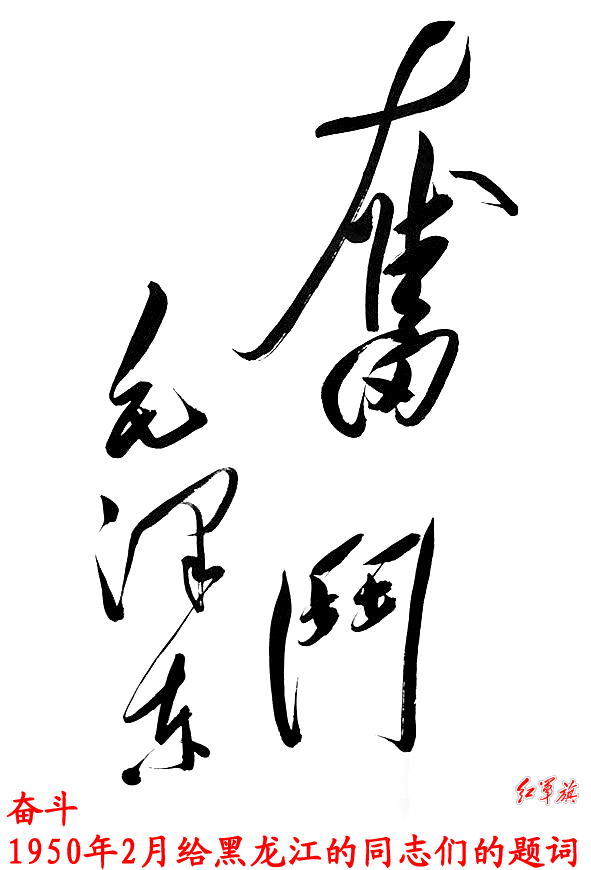 奮鬥
毛澤东
红军旗
奋斗
1950年2月给黑龙江的同志们的题词